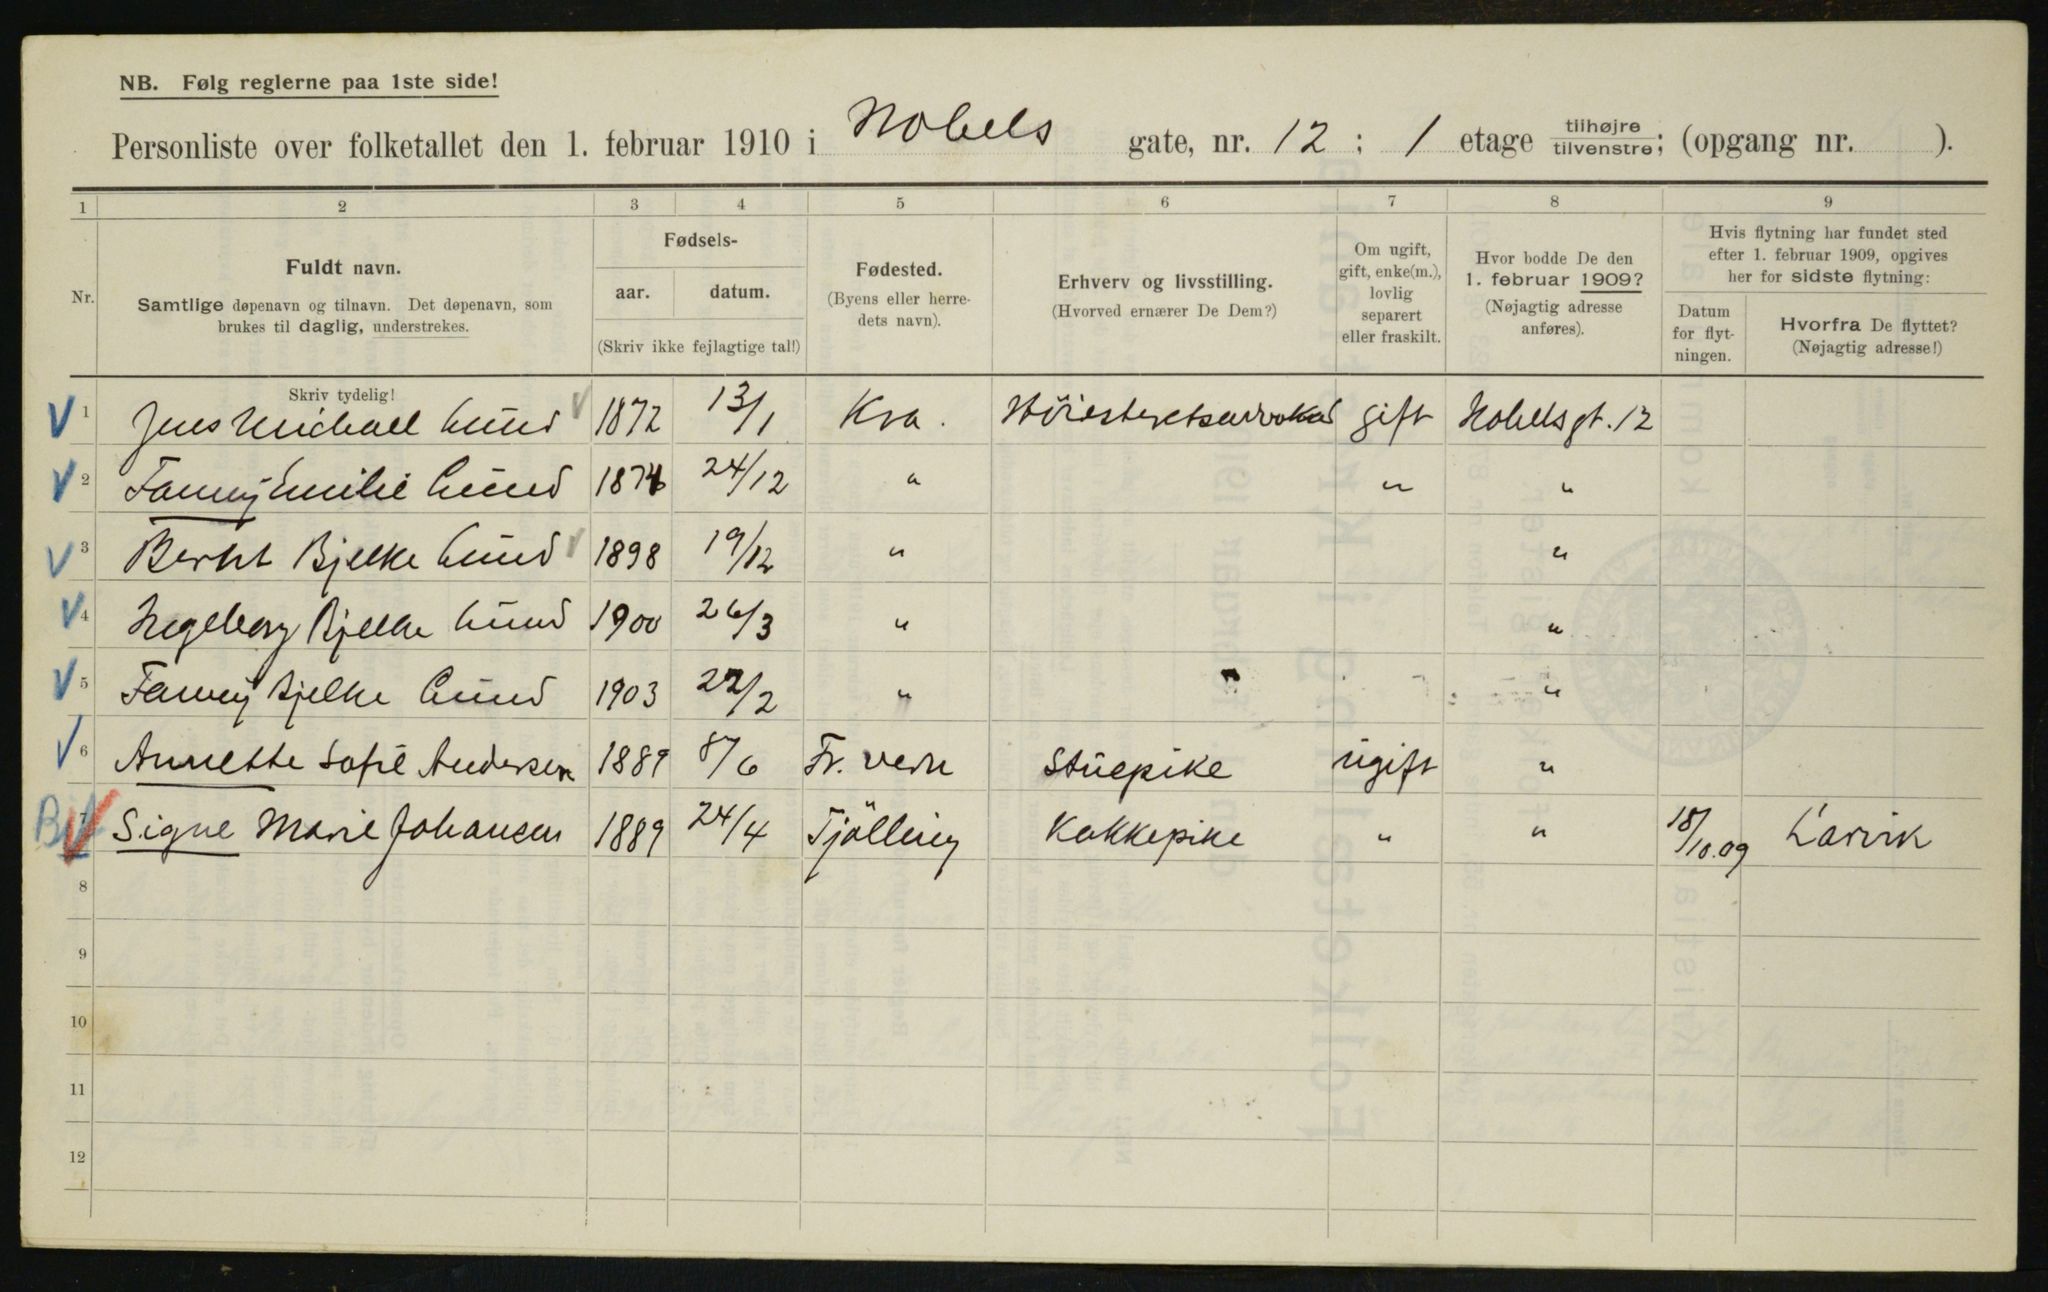 NB. Følg reglerne paa 1ste side!
Personliste over folketallet den 1. februar 1910 i Nobels gate, nr. 12 ; 1 etage tilhøjre tilvenstre; (opgang nr. ).
1 2 3 4 5 6 7 8 9
Nr.
Fuldt navn.
Samtlige døpenavn og tilnavn. Det døpenavn, som
brukes til daglig, understrekes.
Fødsels-
aar. datum.
(Skriv ikke fejlagtige tal!)
Fødested.
(Byens eller herre-
dets navn).
Erhverv og livsstilling.
(Hvorved ernærer De Dem?)
Om ugift,
gift, enke(m.),
lovlig
separert
eller fraskilt.
Hvor bodde De den
1. februar 1909?
(Nøjagtig adresse
anføres).
Hvis flytning har fundet sted
efter 1. februar 1909, opgives
her for sidste flytning:
Datum
for flyt-
ningen.
Hvorfra De flyttet?
(Nøjagtig adresse!)
Skriv tydelig!
1 Jens Michael Lund 1872 13/1 Kra. Höiesteretsadvokat gift Nobelsgt. 12
2 Fanny Emilie Lund 1874 24/12 " " "
3 Bernt Bjelke Lund 1898 19/12 " "
4 Ingeborg Bjelke Lund 1900 26/3 " "
5 Fanny Bjelke Lund 1903 22/2 " "
6 Annette Sofie Andersen 1889 8/6 Fr. vern Stuepike ugift "
7 Signe Marie Johansen 1889 24/4 Tjölling Kokkepike " " 18/10.09 Larvik
8
9
10
11
12